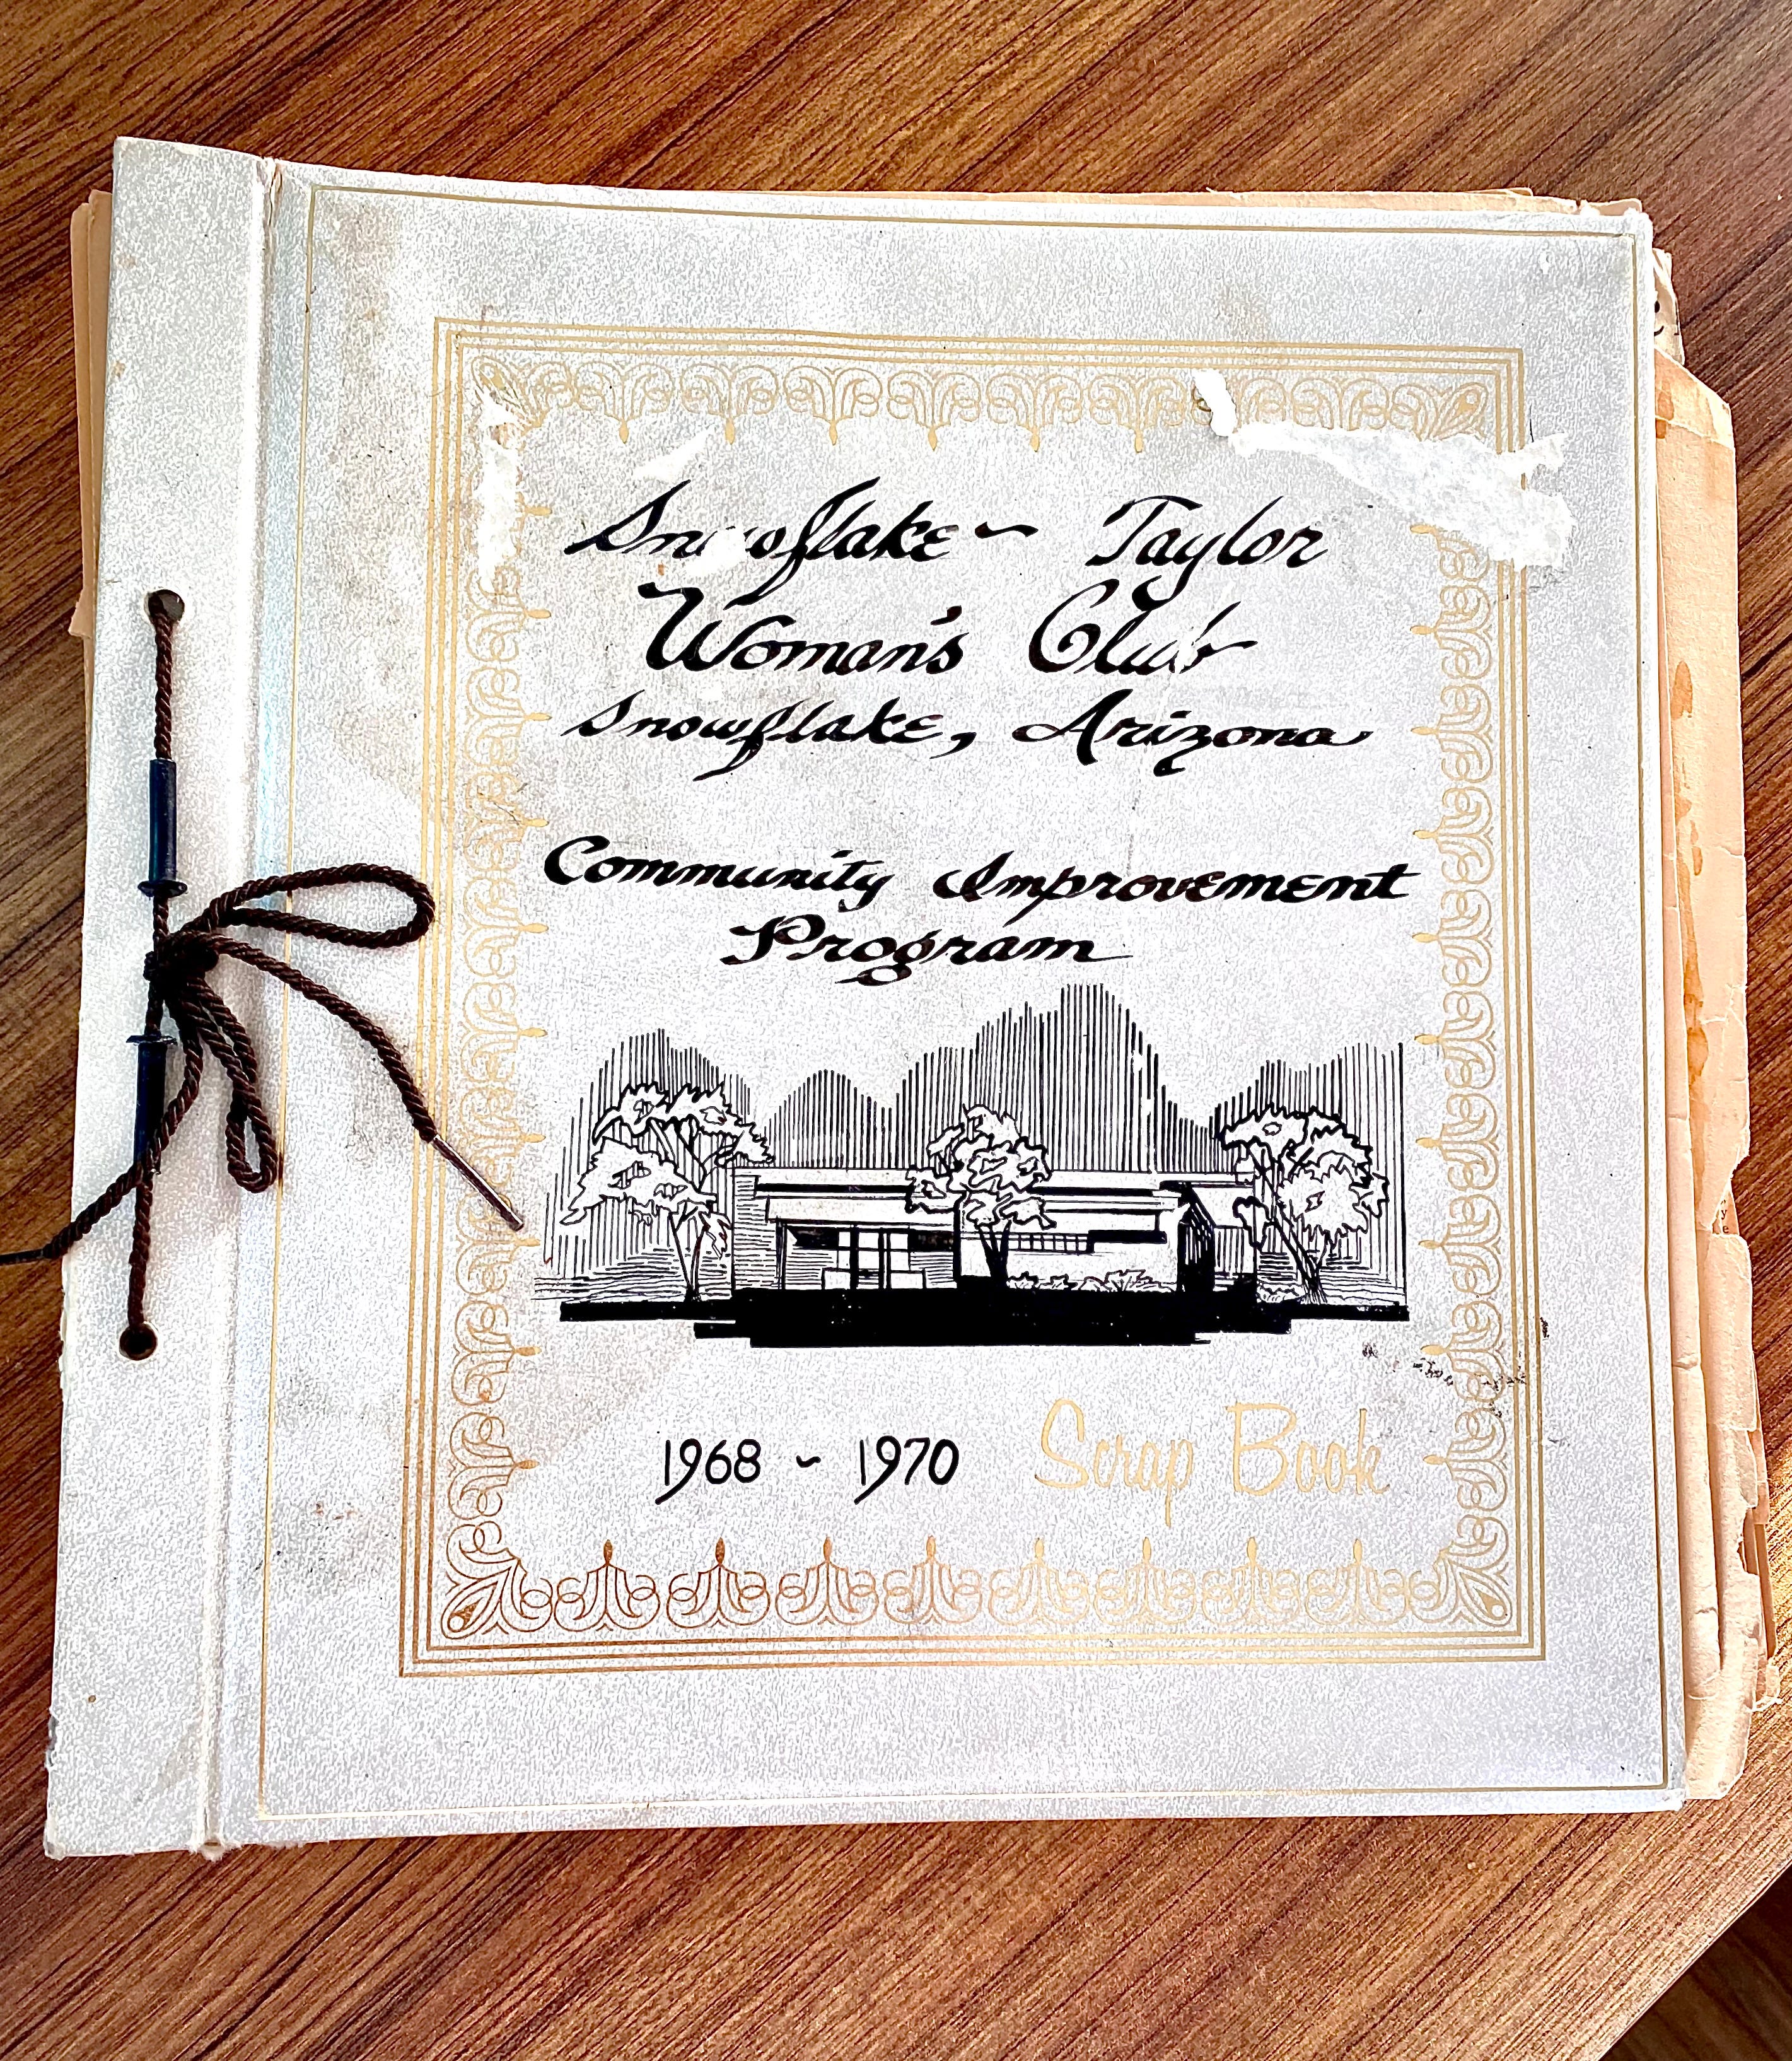 Snowflake ~ Taylor
Woman's Club
Snowflake, Arizona
Community Improvement
Program
1968 ~ 1970 Scrap Book